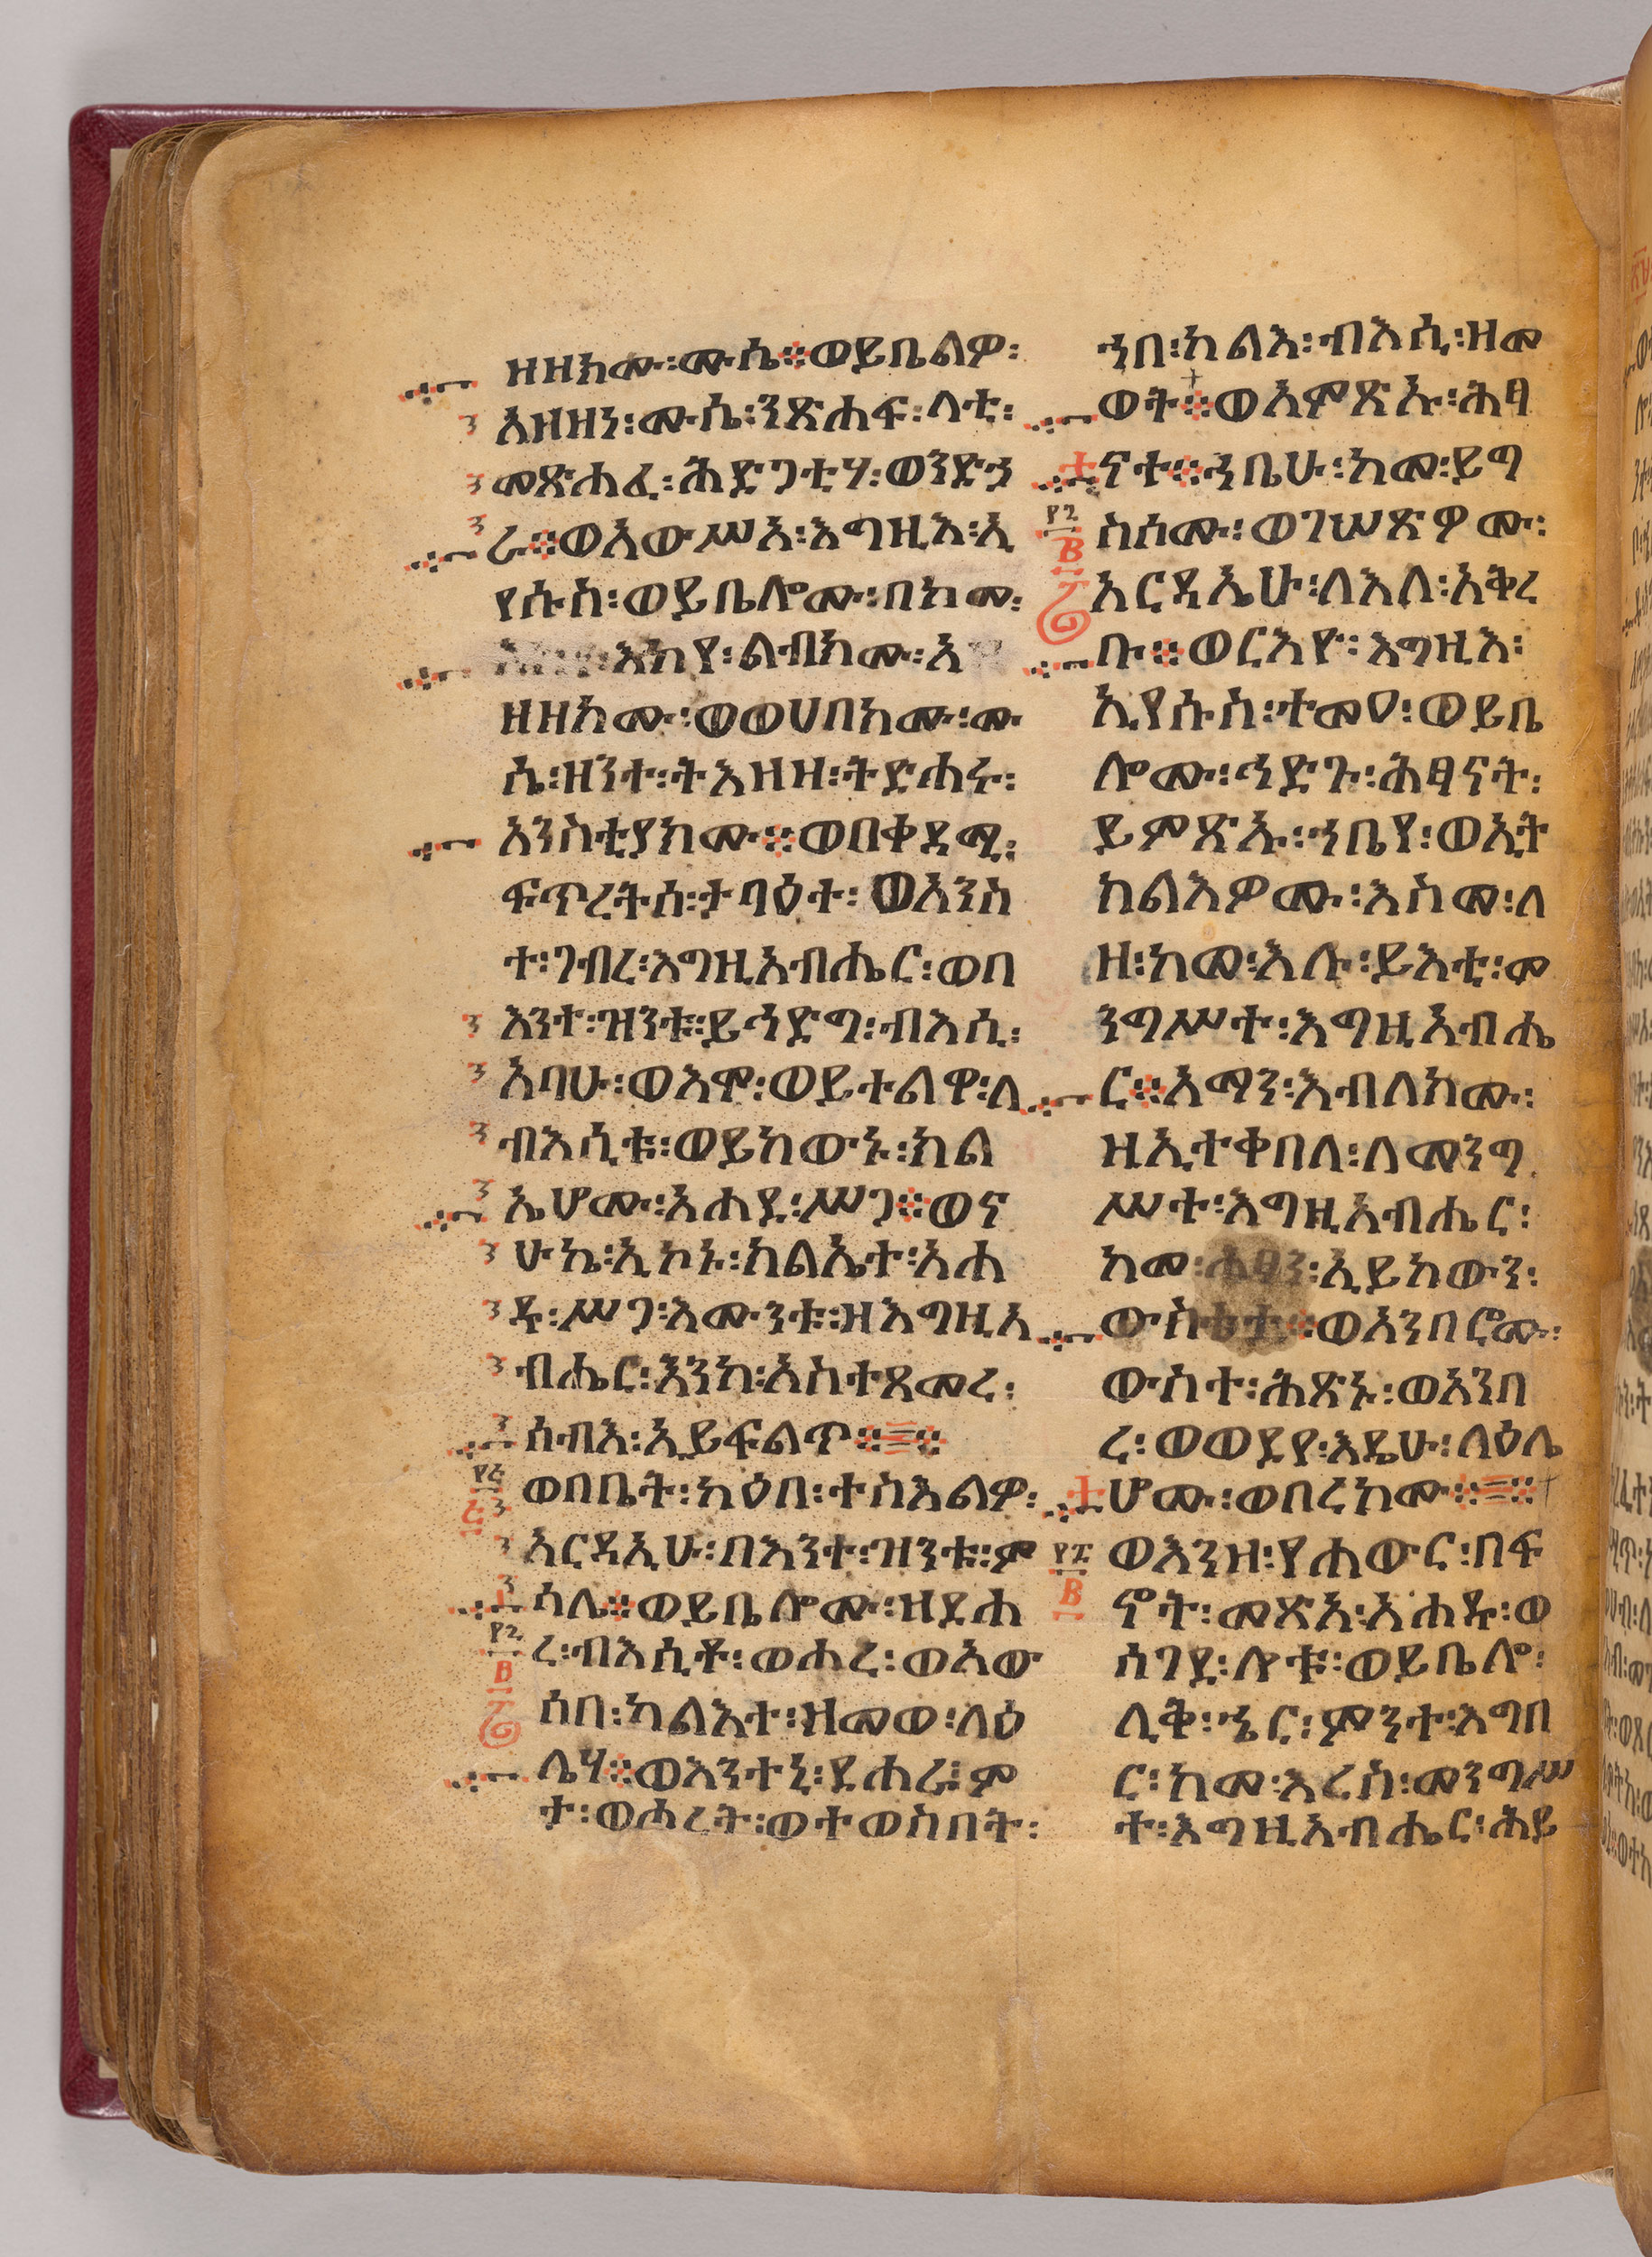 ዘዘክሙ፡ሙሴ፨ወይቤልዎ፡
አዘዘነ፡ሙሴ፡ንጽሐፍ፡ላቲ፡
መጽሐፈ፡ሕድጋቲሃ፡ወንድኅ
ራ፨ወአውሥአ፡እግዚእ፡ኢ
የሱስ፡ወይቤሎሙ፡በከመ፡
እከየ፡ልብክሙ፡አ
ዘዘክሙ፡ወወሀበክሙ፡ሙ
ሴ፡ዘንተ፡ትእዛዘ፡ትድሐሩ፡
አንስቲያክሙ፨ወበቀዳሚ፡
ፍጥረትሰ፡ታባዕተ፡ወአንስ
ተ፡ገብረ፡እግዚአብሔር፡ወበ
እንተ፡ዝንቱ፡ይኅድግ፡ብእሲ፡
አባሁ፡ወእሞ፡ወይተልዋ፡ለ
ብእሲቱ፡ወይከውኑ፡ክል
ኤሆሙ፡አሐደ፡ሥጋ፨ወና
ሁኬ፡ኢኮኑ፡ክልኤተ፡አሐ
ዱ፡ሥጋ፡እሙንቱ፡ዘእግዚአ
ብሔር፡እንከ፡አስተጻመረ፡
ሰብእ፡ኢይፍልጥ፨፨
፲፭
ወበቤት፡ካዕበ፡ተስእልዎ፡
አርዳኢሁ፡በእንተ፡ዝንቱ፡ም
ሳሌ፨ወይቤሎሙ፡ዘደሐ
ረ፡ብእሲቶ፡ወሖረ፡ወአው
ሰበ፡ካልእተ፡ዘመወ፡ላዕ
ሌሃ፨ወእንተኒ፡ደሐራ፡ም
ታ፡ወሖረት፡ወተወስበት፡
ኀበ፡ካልእ፡ብእሲ፡ዘመ
ወት፨ወአምጽኡ፡ሕፃ
ናተ፨ኀቤሁ፡ከመ፡ይግ
ስሶሙ፡ወገሠጽዎሙ፡
አርዳኢሁ፡ለእለ፡አቅረ
ቡ፨ወርእዮ፡እግዚእ፡
ኢየሱስ፡ተመዐ፡ወይቤ
ሎሙ፡ኅድጉ፡ሕፃናት፡
ይምጽኡ፡ኀቤየ፡ወኢት
ክልእዎሙ፡እስመ፡ለ
ዘ፡ከመ፡እሉ፡ይእቲ፡መ
ንግሥተ፡እግዚአብሔ
ር፨አማን፡እብለክሙ፡
ዘኢተቀበለ፡ለመንግ
ሥተ፡እግዚአብሔር፡
ከመ፡ሕፃን፡ኢይከውን፡
ውስቴታ፨ወአንበሮሙ፡
ውስተ፡ሕጽኑ፡ወአንበ
ረ፡ወወደየ፡እዴሁ፡ላዕሌ
ሆሙ፡ወባረከሙ፨፨
ወእንዘ፡የሐውር፡በፍ
ኖት፡መጽአ፡አሐዱ፡ወ
ሰገደ፡ሎቱ፡ወይቤሎ፡
ሊቅ፡ኄር፡ምንተ፡እግበ
ር፡ከመ፡እረስ፡መንግሥ
ተ፡እግዚአብሔር፡ሕይ